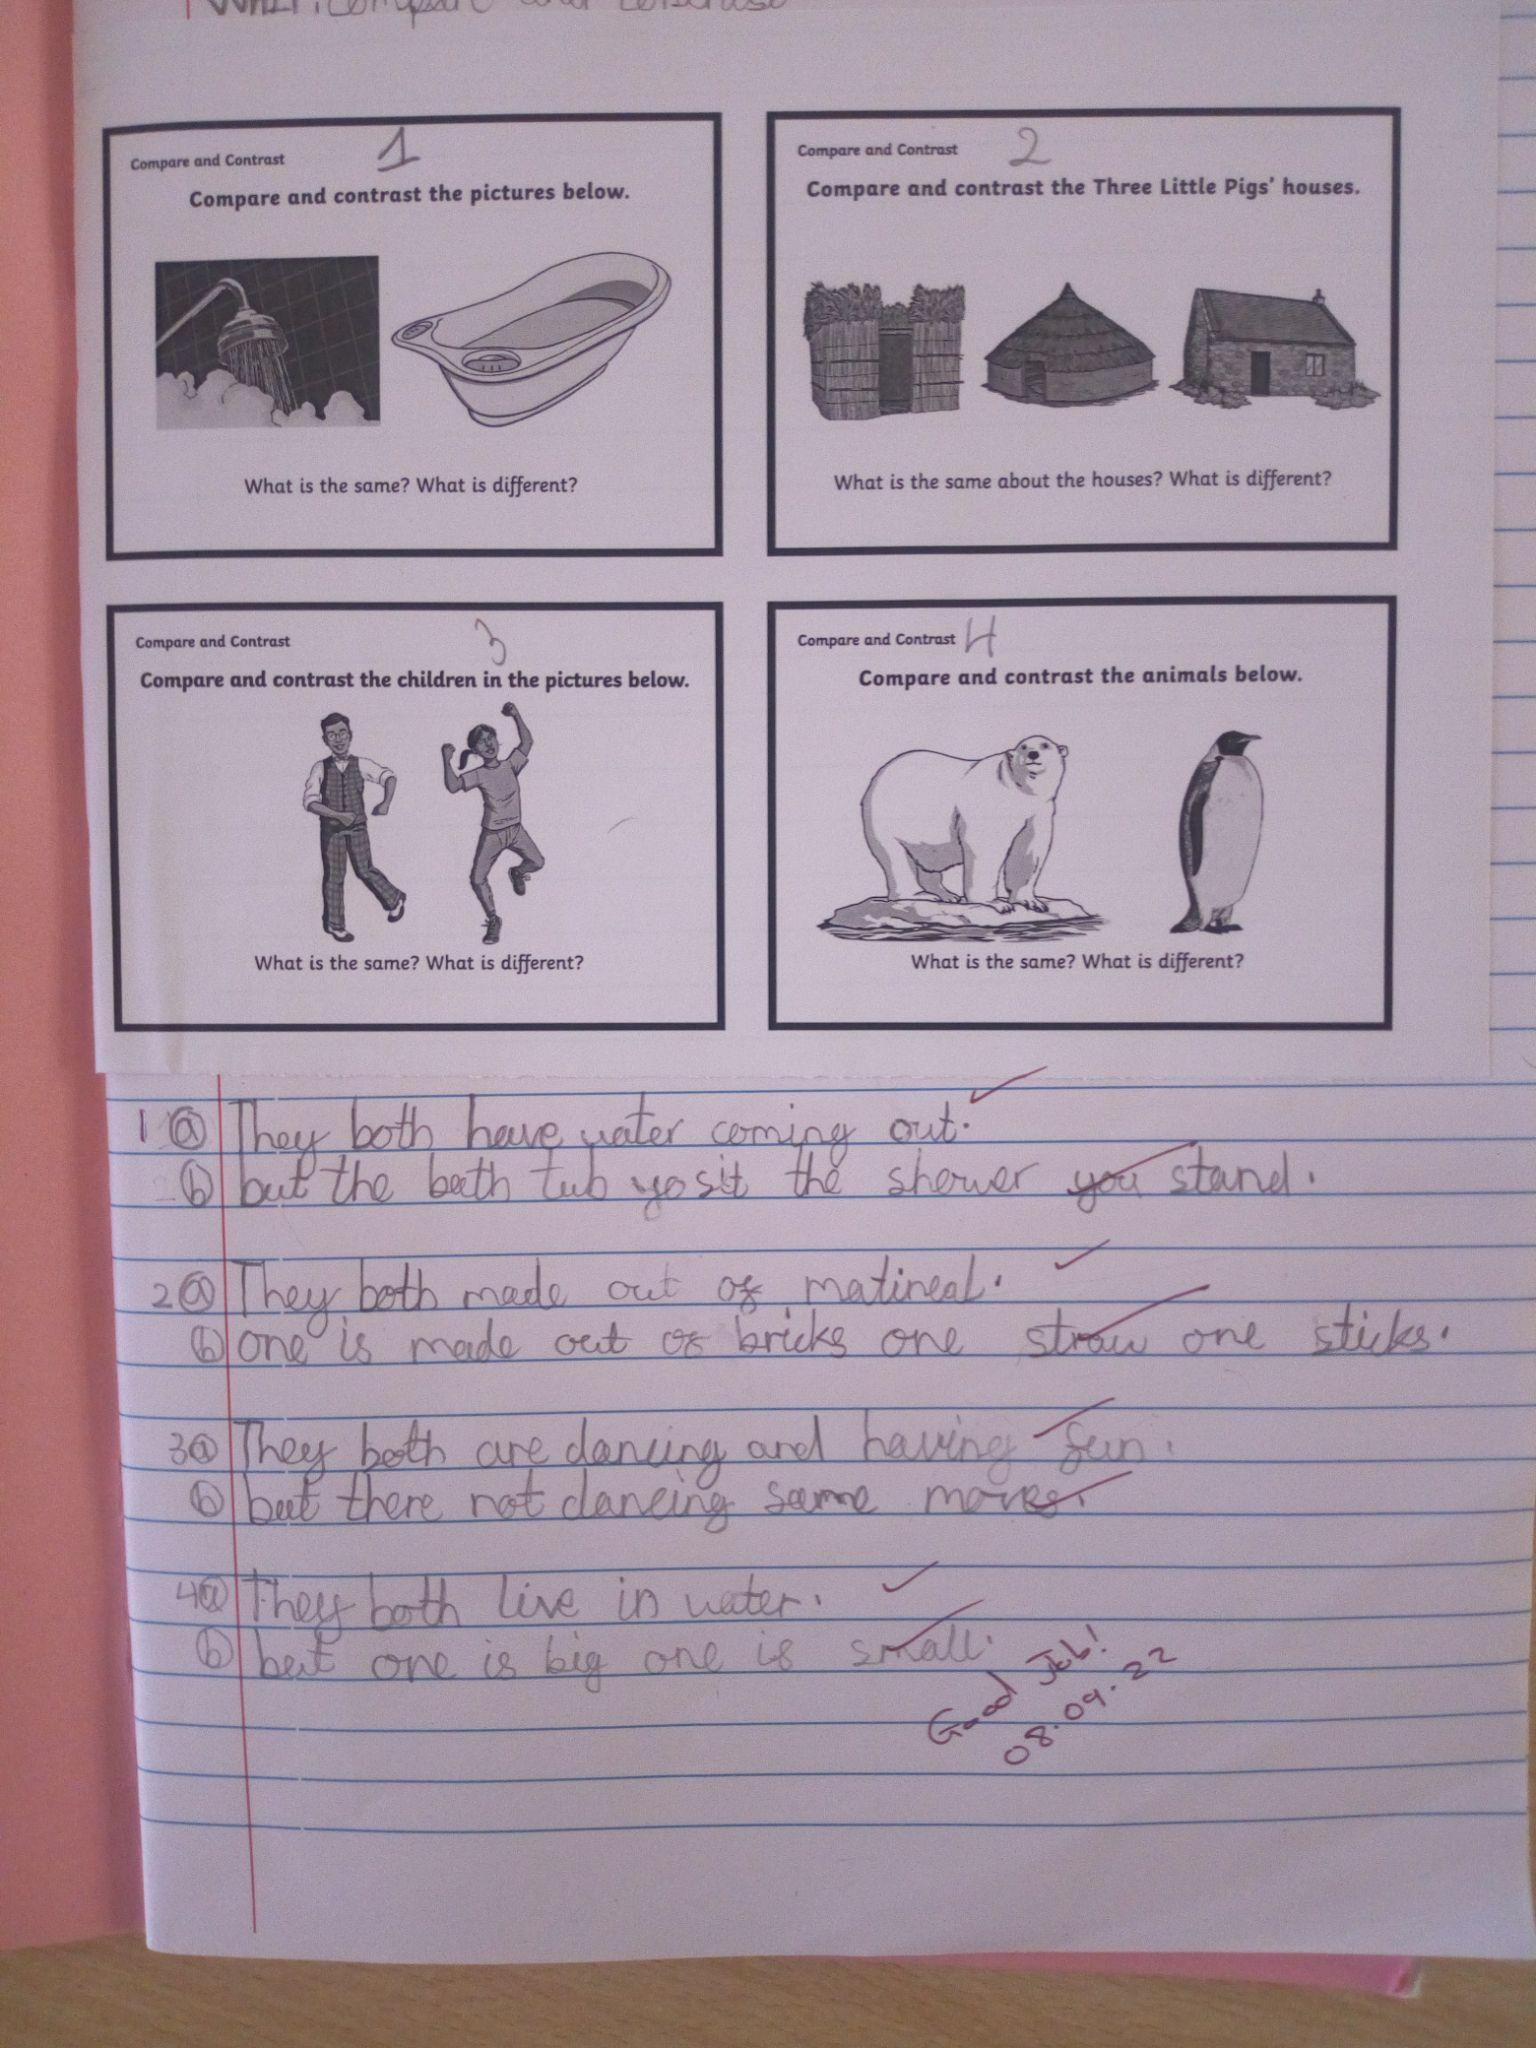 compare and contrast
Compare and Contrast 1
Compare and contrast the pictures below.
What is the same? What is different?
Compare and Contrast 2
Compare and contrast the Three Little Pigs' houses.
What is the same about the houses? What is different?
Compare and Contrast 3
Compare and contrast the children in the pictures below.
What is the same? What is different?
Compare and Contrast 4
Compare and contrast the animals below.
What is the same? What is different?
1 a They both have water coming out.
b but the bath tub yo sit the shower you stand.
2 a They both made out of matineal.
b one is made out of bricks one straw one sticks.
3 a They both are dancing and having fun.
b but there not dancing same moves.
4 a They both live in water.
b but one is big one is small.
Good Job!
08.09.22